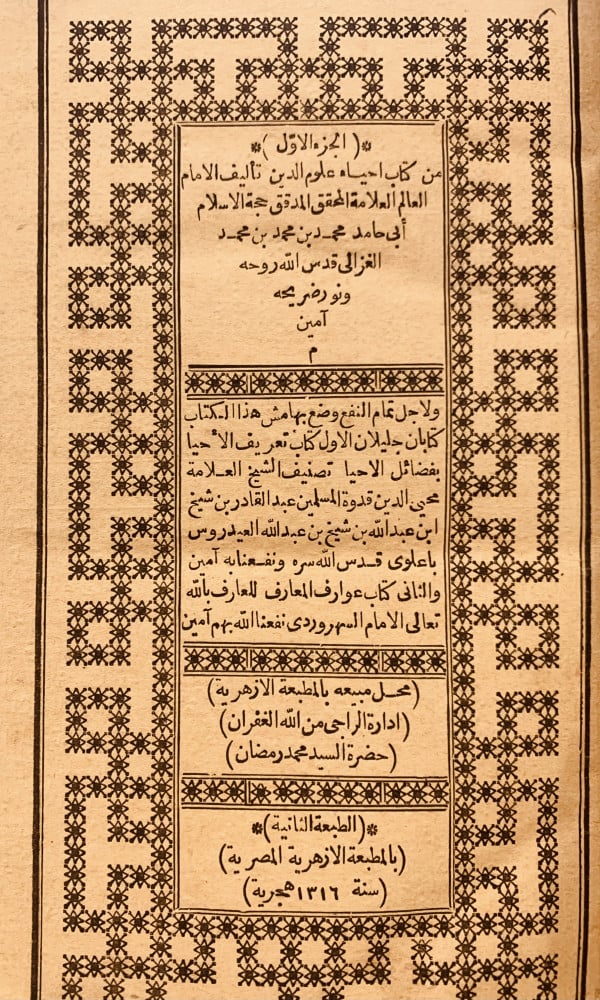 *(الجزء الاوّل)*
من كتاب احياء علوم الدين تأليف الامام
العالم العلامة المحقق المدقق حجة الاسلام
أبى حامد محمد بن محمد بن محمد
الغزالى قدس الله روحه
ونور ضريحه
آمين
م
ولاجل تمام النفع وضع بهامش هذا الكتاب
كتابان جليلان الاول كتاب تعريف الأحيا
بفضائل الاحيا تصنيف الشيخ العلامة
محيى الدين قدوة المسلمين عبد القادر بن شيخ
ابن عبد الله بن شيخ بن عبد الله العيدروس
باعلوى قدس الله سره ونفعنا به آمين
والثانى كتاب عوارف المعارف للعارف بالله
تعالى الامام السهروردى نفعنا الله بهم آمين
(محل مبيعه بالمطبعة الازهرية)
(ادارة الراجى من الله الغفران)
(حضرة السيد محمد رمضان)
*(الطبعة الثانية)*
(بالمطبعة الازهرية المصرية)
(سنة ١٣١٦ هجرية)